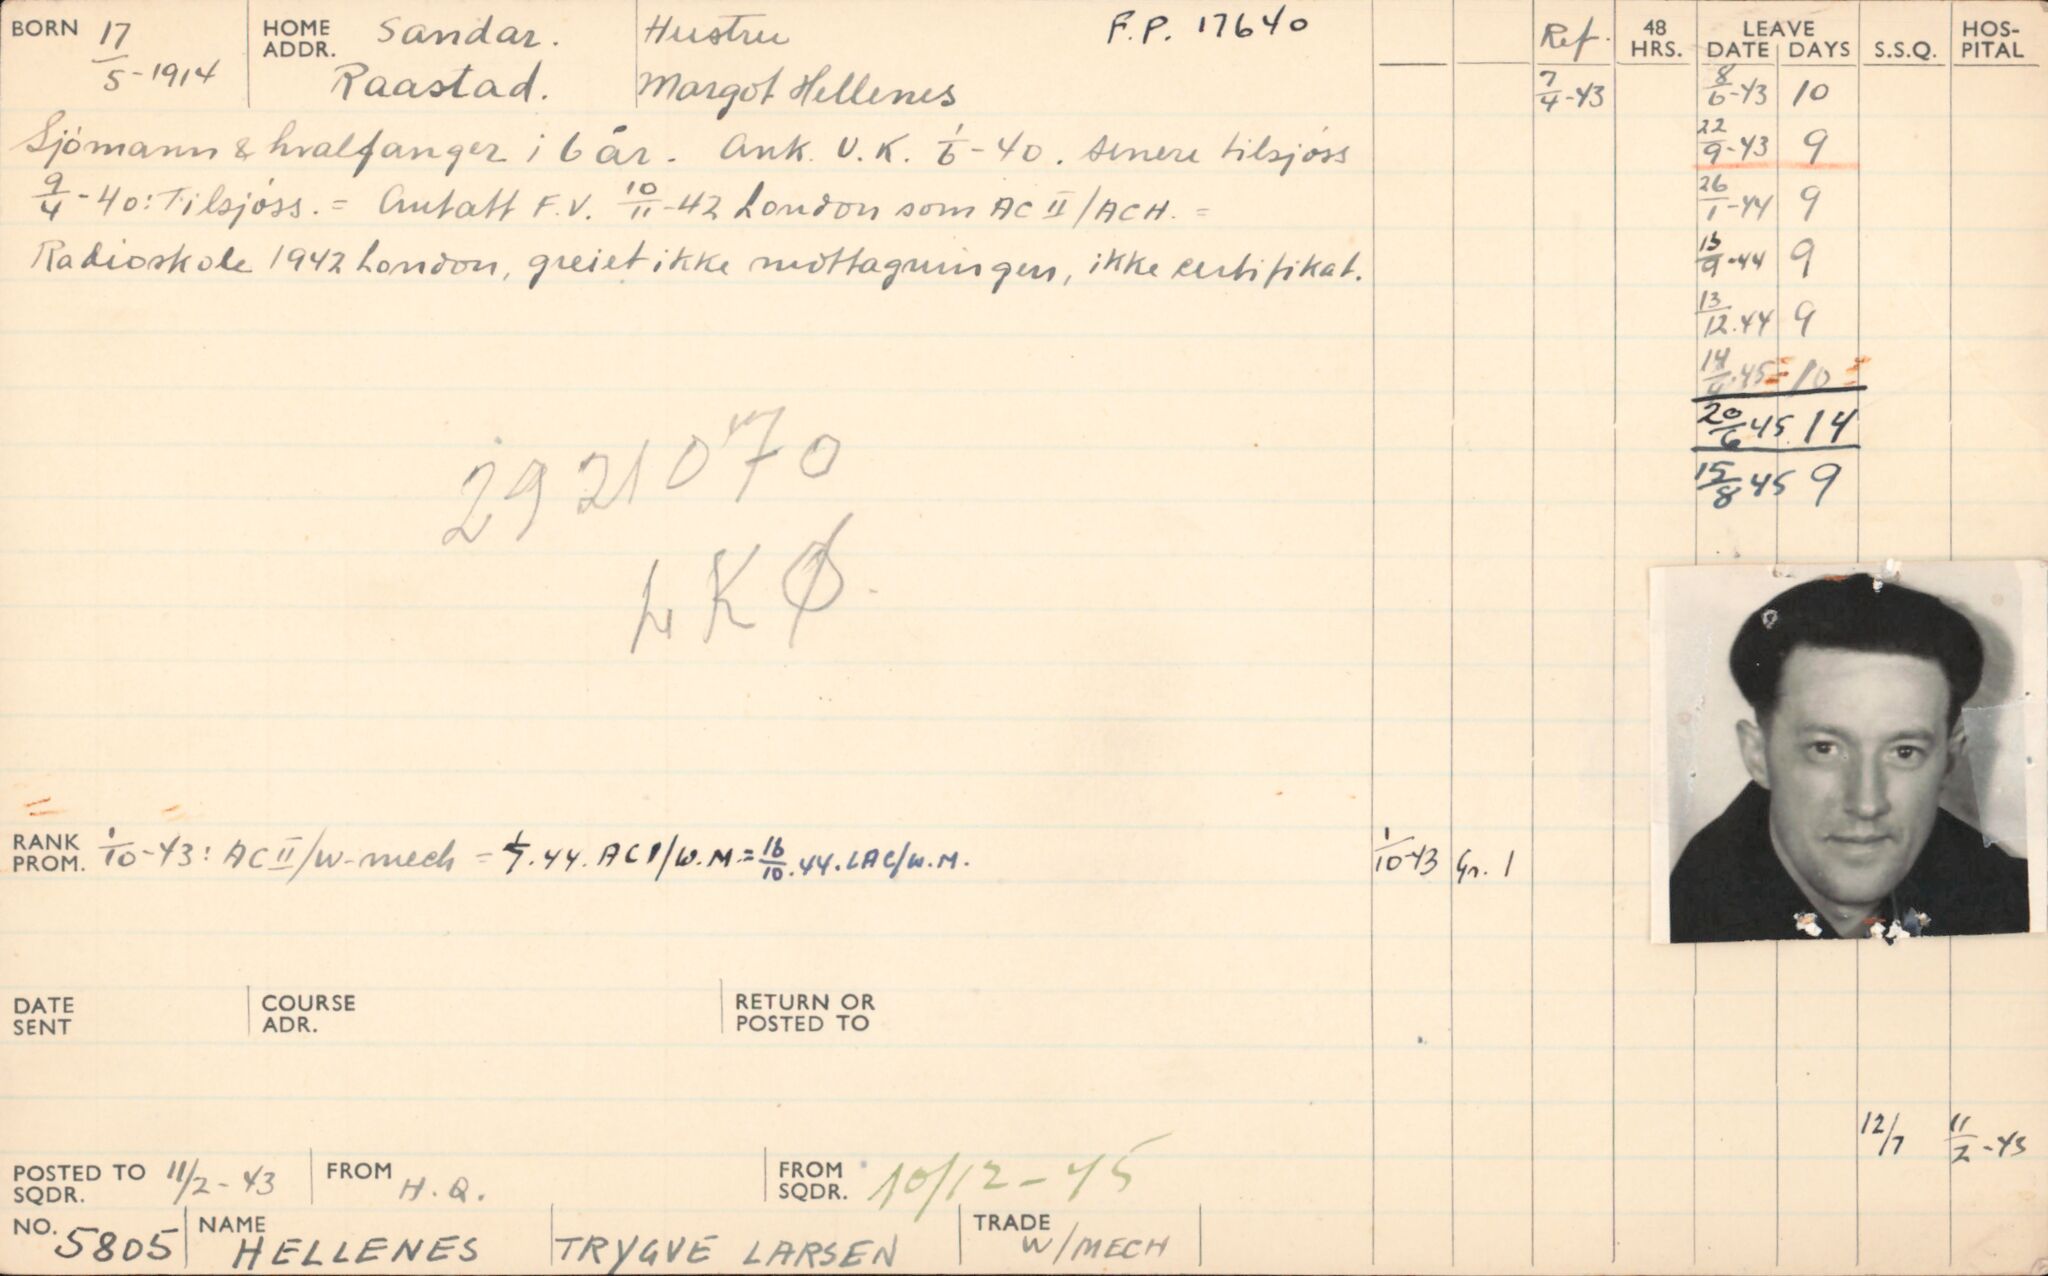 BORN 17/5-1914 HOME ADDR. Sandar. Raastad. Hustru Margot Hellenes F.P. 17640
Ref. 48 HRS. LEAVE DATE DAYS S.S.Q. HOSPITAL
7/4-43 8/6-43 10
Sjömann & hvalfanger i 6 år. Ank. U.K. 1/6-40. senere tilsjøss
22/9-43 9
9/4-40: Tilsjøss. = Antatt F.V. 10/11-42 London som AC II/ACH. =
26/1-44 9
Radioskole 1942 London, greiet ikke mottagningen, ikke certifikat.
9-44 9
13/12.44 9
14/4.45 = 10 =
20/6 45 14
15/8 45 9
2921070
LKØ.
RANK PROM. 1/10-43: AC II/W-mech = 1/7.44. AC1/W.M. = 16/10.44. LAC/W.M.
1/10-43 Gr. 1
DATE SENT COURSE ADR. RETURN OR POSTED TO
12/7 11/2-43
POSTED TO SQDR. 11/2-43 FROM H.Q. FROM SQDR. 10/12-45
NO. 5805 NAME HELLENES TRYGVE LARSEN TRADE W/MECH